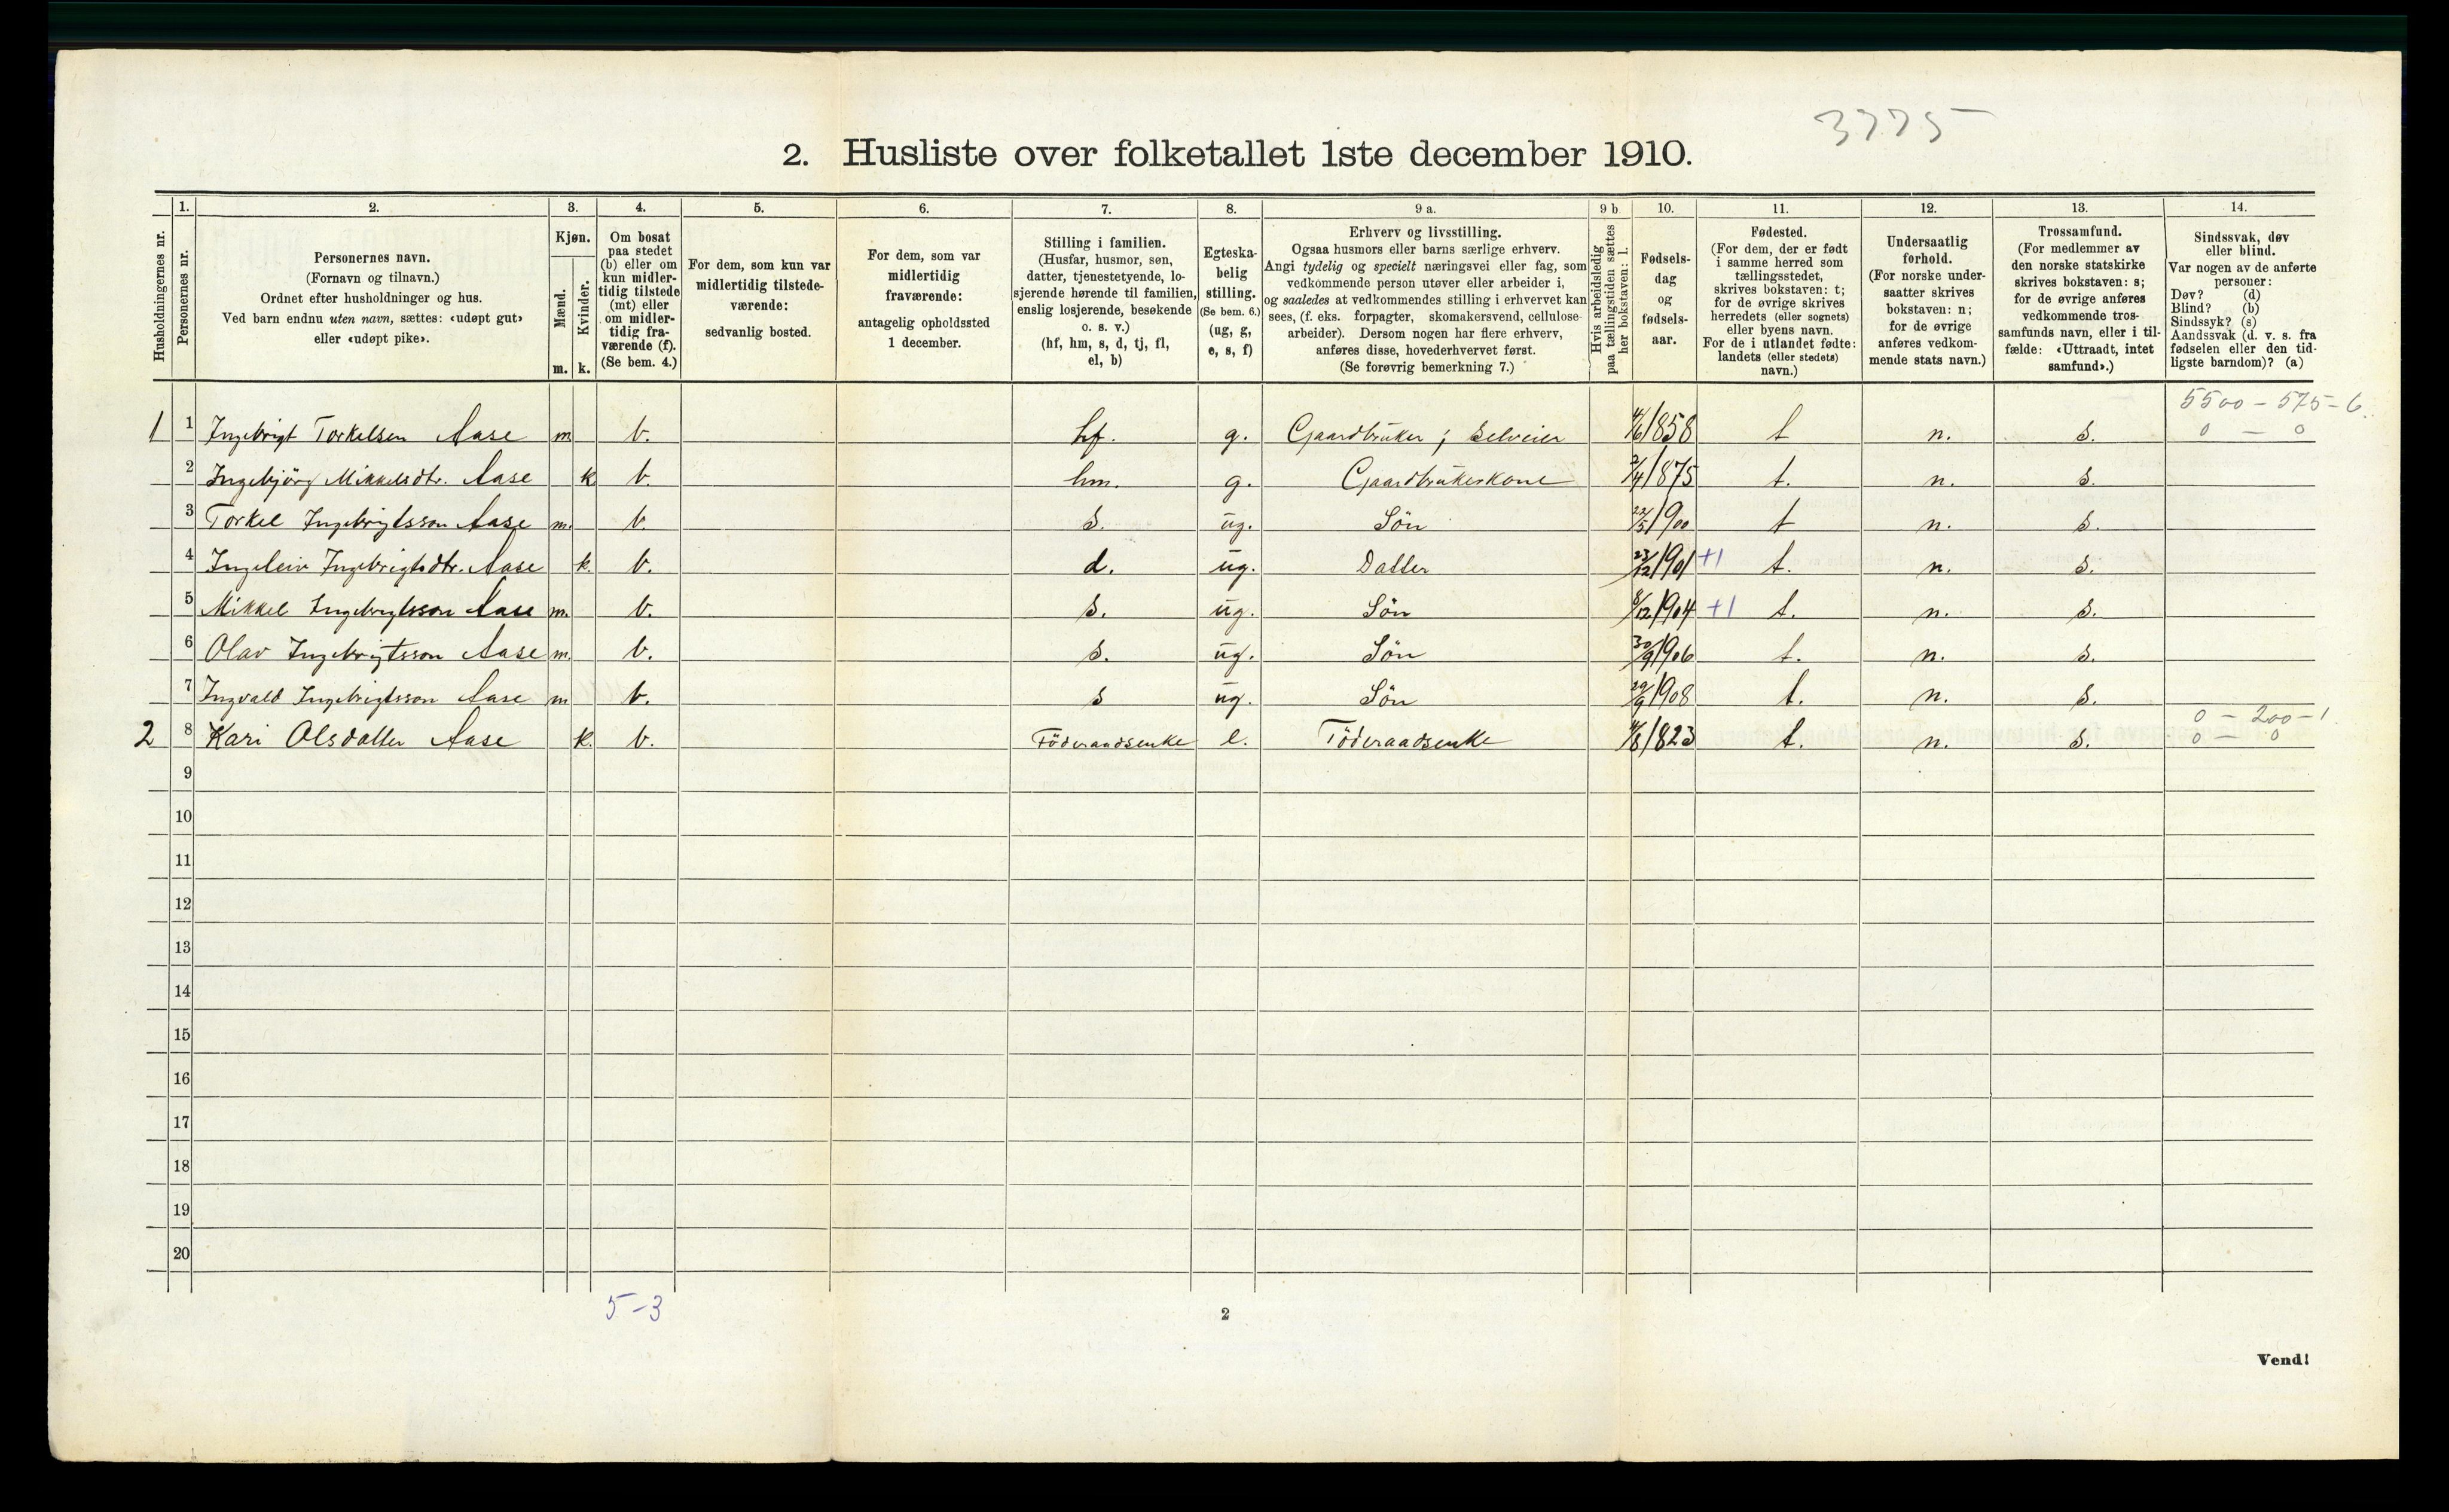 3775
2. Husliste over folketallet 1ste december 1910.
Husholdningernes nr.
1.
Personernes nr.
2.
Personernes navn.
(Fornavn og tilnavn.)
Ordnet efter husholdninger og hus.
Ved barn endnu uten navn, sættes: «udøpt gut»
eller «udøpt pike».
3.
Kjøn.
Mænd.
Kvinder.
m. k.
4.
Om bosat
paa stedet
(b) eller om
kun midler-
tidig tilstede
(mt) eller
om midler-
tidig fra-
værende (f).
(Se bem. 4.)
5.
For dem, som kun var
midlertidig tilstede-
værende:
sedvanlig bosted.
6.
For dem, som var
midlertidig
fraværende:
antagelig opholdssted
1 december.
7.
Stilling i familien.
(Husfar, husmor, søn,
datter, tjenestetyende, lo-
sjerende hørende til familien,
enslig losjerende, besøkende
o. s. v.)
(hf, hm, s, d, tj, fl,
el, b)
8.
Egteska-
belig
stilling.
(Se bem. 6.)
(ug, g,
e, s, f)
9 a.
Erhverv og livsstilling.
Ogsaa husmors eller barns særlige erhverv.
Angi tydelig og specielt næringsvei eller fag, som
vedkommende person utøver eller arbeider i,
og saaledes at vedkommendes stilling i erhvervet kan
sees, (f. eks. forpagter, skomakersvend, cellulose-
arbeider). Dersom nogen har flere erhverv,
anføres disse, hovederhvervet først.
(Se forøvrig bemerkning 7.)
9 b
Hvis arbeidsledig
paa tællingstiden sættes
her bokstaven: l.
10.
Fødsels-
dag
og
fødsels-
aar.
11.
Fødested.
(For dem, der er født
i samme herred som
tællingsstedet,
skrives bokstaven: t;
for de øvrige skrives
herredets (eller sognets)
eller byens navn.
For de i utlandet fødte:
landets (eller stedets)
navn.)
12.
Undersaatlig
forhold.
(For norske under-
saatter skrives
bokstaven: n;
for de øvrige
anføres vedkom-
mende stats navn.)
13.
Trossamfund.
(For medlemmer av
den norske statskirke
skrives bokstaven: s;
for de øvrige anføres
vedkommende tros-
samfunds navn, eller i til-
fælde: «Uttraadt, intet
samfund».)
14.
Sindssvak, døv
eller blind.
Var nogen av de anførte
personer:
Døv? (d)
Blind? (b)
Sindssyk? (s)
Aandssvak (d. v. s. fra
fødselen eller den tid-
ligste barndom)? (a)
5500 - 575 - 6.
1 1 Ingebrigt Torkelsen Aase m b. hf. g. Gaardbruker; Selveier 4/6/858 t n. s. 0 - 0
2 Ingebjörg Mikkelsdtr. Aase k b. hm. g. Gaardbrukerkone 2/4/875 t. n. s.
3 Torkel Ingebrigtsson Aase m. b. s. ug. Sön 22/5/900 t n. s.
4 Ingeleiv Ingebrigtsdtr. Aase k. b. d. ug. Datter 23/12/901 +1 t. n. s.
5 Mikkel Ingebrigtsson Aase m. b. s. ug. Sön 8/12/904 +1 t. n. s.
6 Olav Ingebrigtsson Aase m. b. s. ug. Sön 30/9/906 t. n. s.
7 Ingvald Ingebrigtsson Aase m b. s ug. Sön 29/9/908 t. n. s.
0 - 200 - 1.
2 8 Kari Olsdatter Aase k. b. Föderaadsenke e. Föderaadsenke /8/823 t. n. s. 0 - 0
9
10
11
12
13
14
15
16
17
18
19
20
5-3
2
Vend!